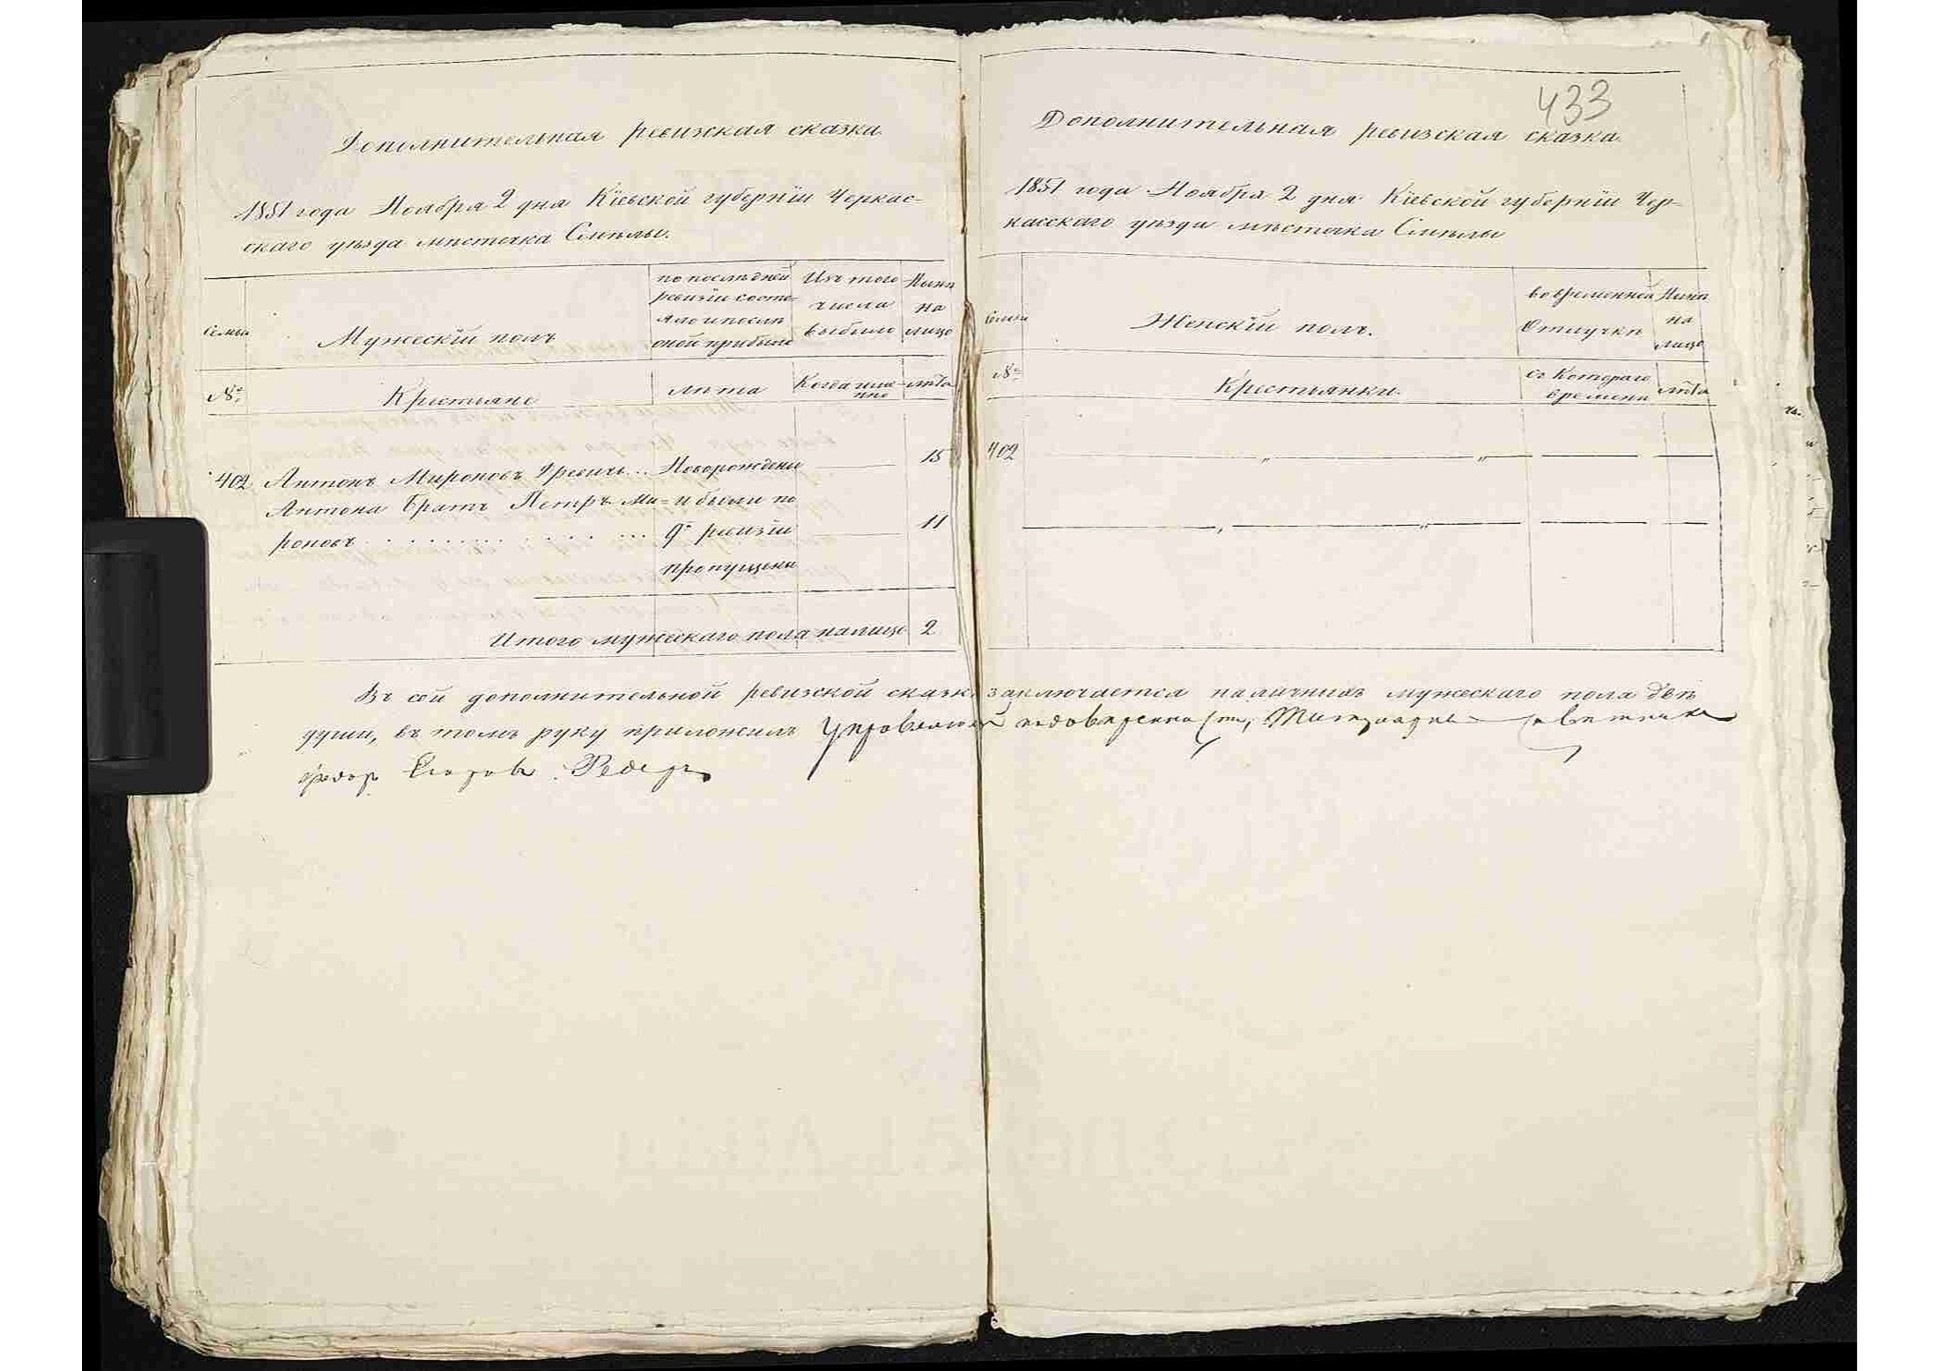 Дополнительная ревизская сказка
1851 года Ноября 2 дня Кіевской губерніи Черкас-
скаго уѣзда мѣстечка Смѣлы.
Семьи
Мужескій полъ
по послѣдней
ревизіи состо-
яло и послѣ
оной прибыло
Изъ того
числа
выбыло
Нынѣ
на
лицо
№
Крестьяне
лѣта
Когда име-
нно
лѣта
402 Антонъ Мироновъ ... Новорожден 15
Антона Братъ Петръ Ми- и были по
роновъ 9й ревизіи 11
пропущены
Итого мужескаго пола налицо 2
433
Дополнительная ревизская сказка.
1851 года Ноября 2 дня Кіевской губерніи Чер-
касскаго уѣзда мѣстечка Смѣлы
Семьи
Женскій полъ.
во временной
Отлучкѣ
Нынѣ
на
лицо
№
Крестьянки.
съ Котораго
времени
лѣта
402
Въ сей дополнительной ревизской сказкѣ заключается наличныхъ мужескаго пола двѣ
души, въ томъ руку приложилъ Титулярный совѣтникъ